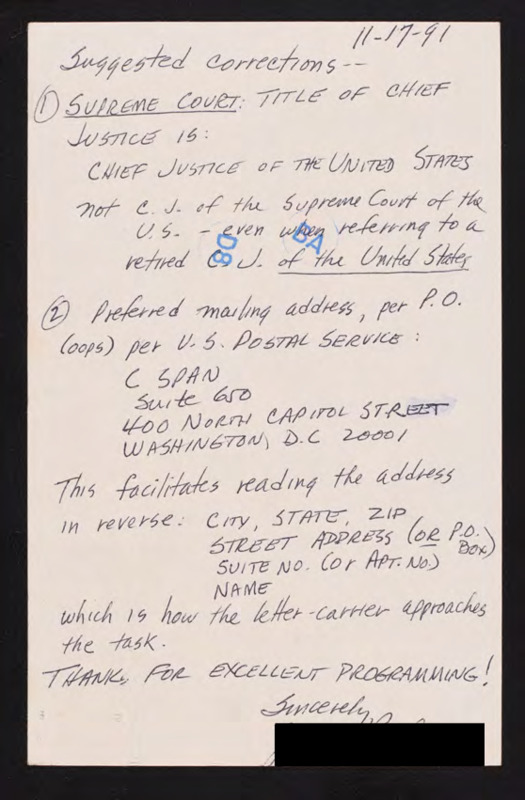 11-17-91
Suggested corrections--
① SUPREME COURT: TITLE OF CHIEF
JUSTICE IS:
CHIEF JUSTICE OF THE UNITED STATES
not C. J. of the Supreme Court of the
U.S. - even when referring to a
retired C. J. of the United States
BA
D8
② Preferred mailing address, per P.O.
(oops) per U.S. POSTAL SERVICE:
C SPAN
Suite 650
400 NORTH CAPITOL STREET
WASHINGTON, D.C 20001
This facilitates reading the address
in reverse: CITY, STATE, ZIP
STREET ADDRESS (OR P.O. Box)
SUITE NO. (or APT. No.)
NAME
which is how the letter-carrier approaches
the task.
THANKS FOR EXCELLENT PROGRAMMING!
Sincerely